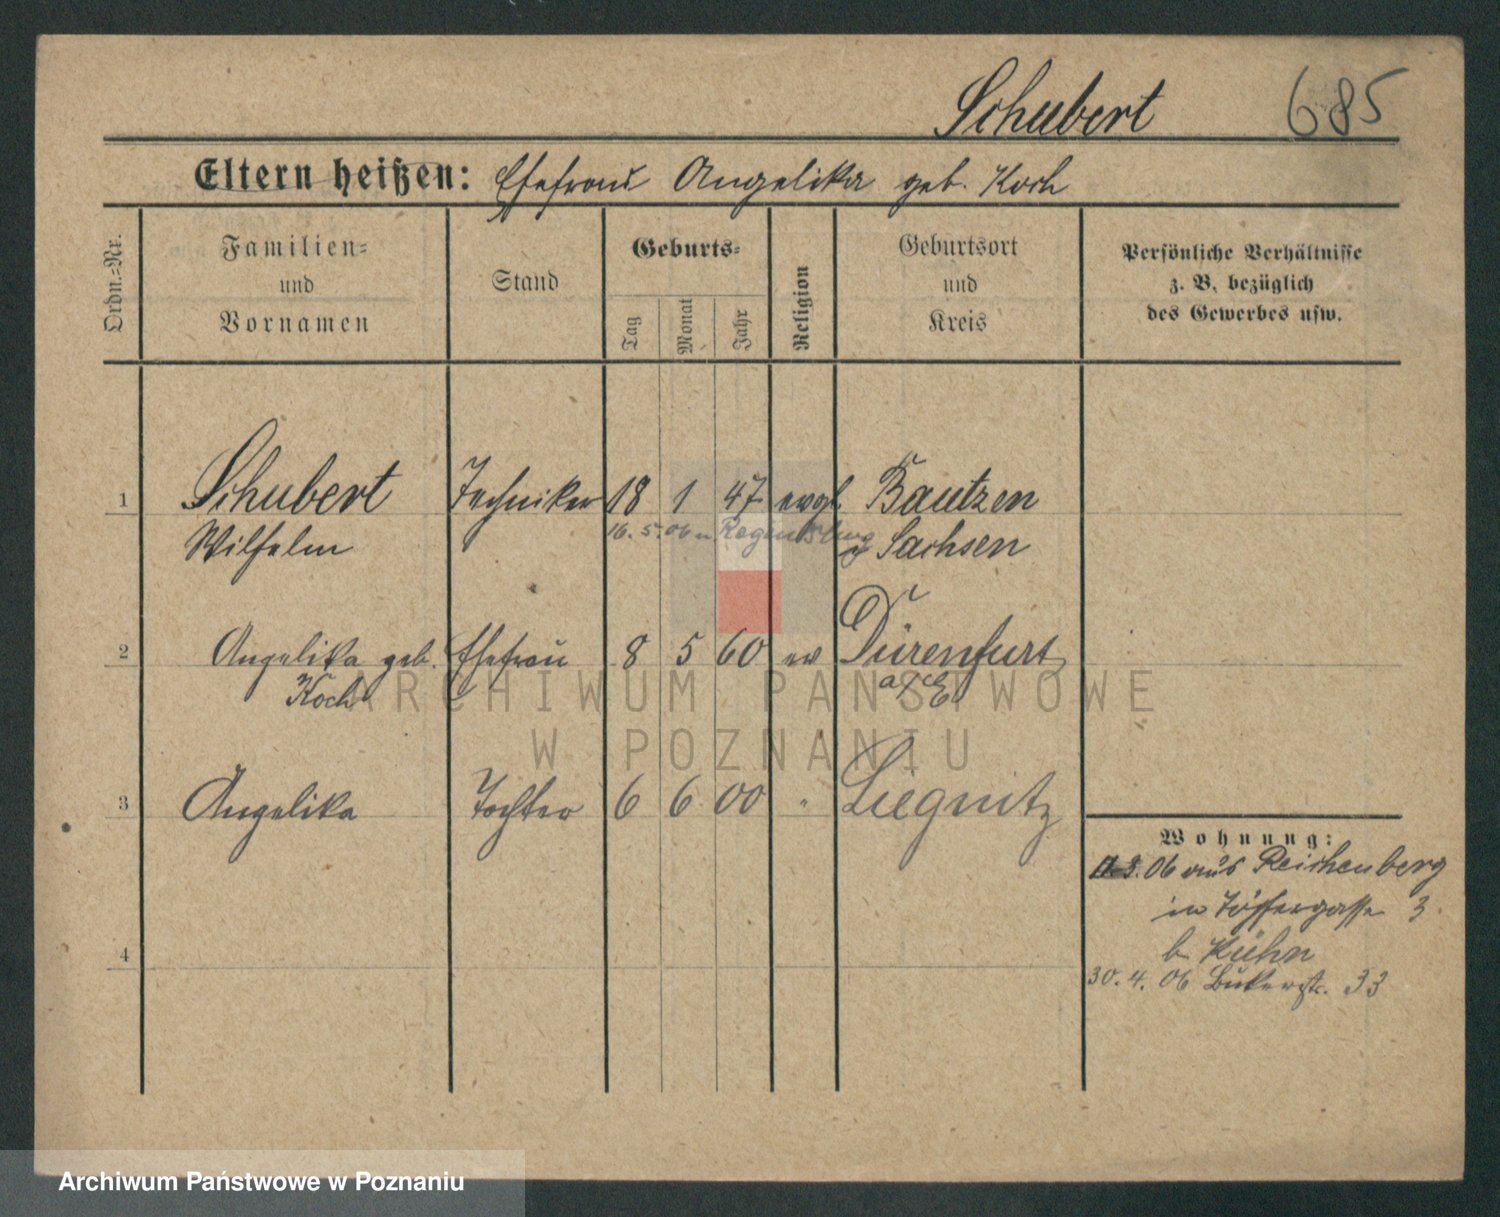 Schubert 685
Eltern heißen: Ehefrau Angelika geb. Koch
Ordn.-Nr.
Familien-
und
Vornamen
Stand
Geburts-
Tag
Monat
Jahr
Religion
Geburtsort
und
Kreis
Persönliche Verhältnisse
z. B. bezüglich
des Gewerbes usw.
1 Schubert Techniker 18 1 47 evgl Bautzen
16. 5. 06 n Regensburg
Wilhelm Sachsen
2 Angelika geb. Ehefrau 8 5 60 ev Dürenfurt
Koch a/
ARCHIWUM PAŃSTWOWE
W POZNANIU
3 Angelika Tochter 6 6 00 " Liegnitz
Wohnung:
3. 06 aus Reichenberg
in Töpfergasse 3
b. Kühn
30. 4. 06 Bukerstr. 33
4
Archiwum Państwowe w Poznaniu